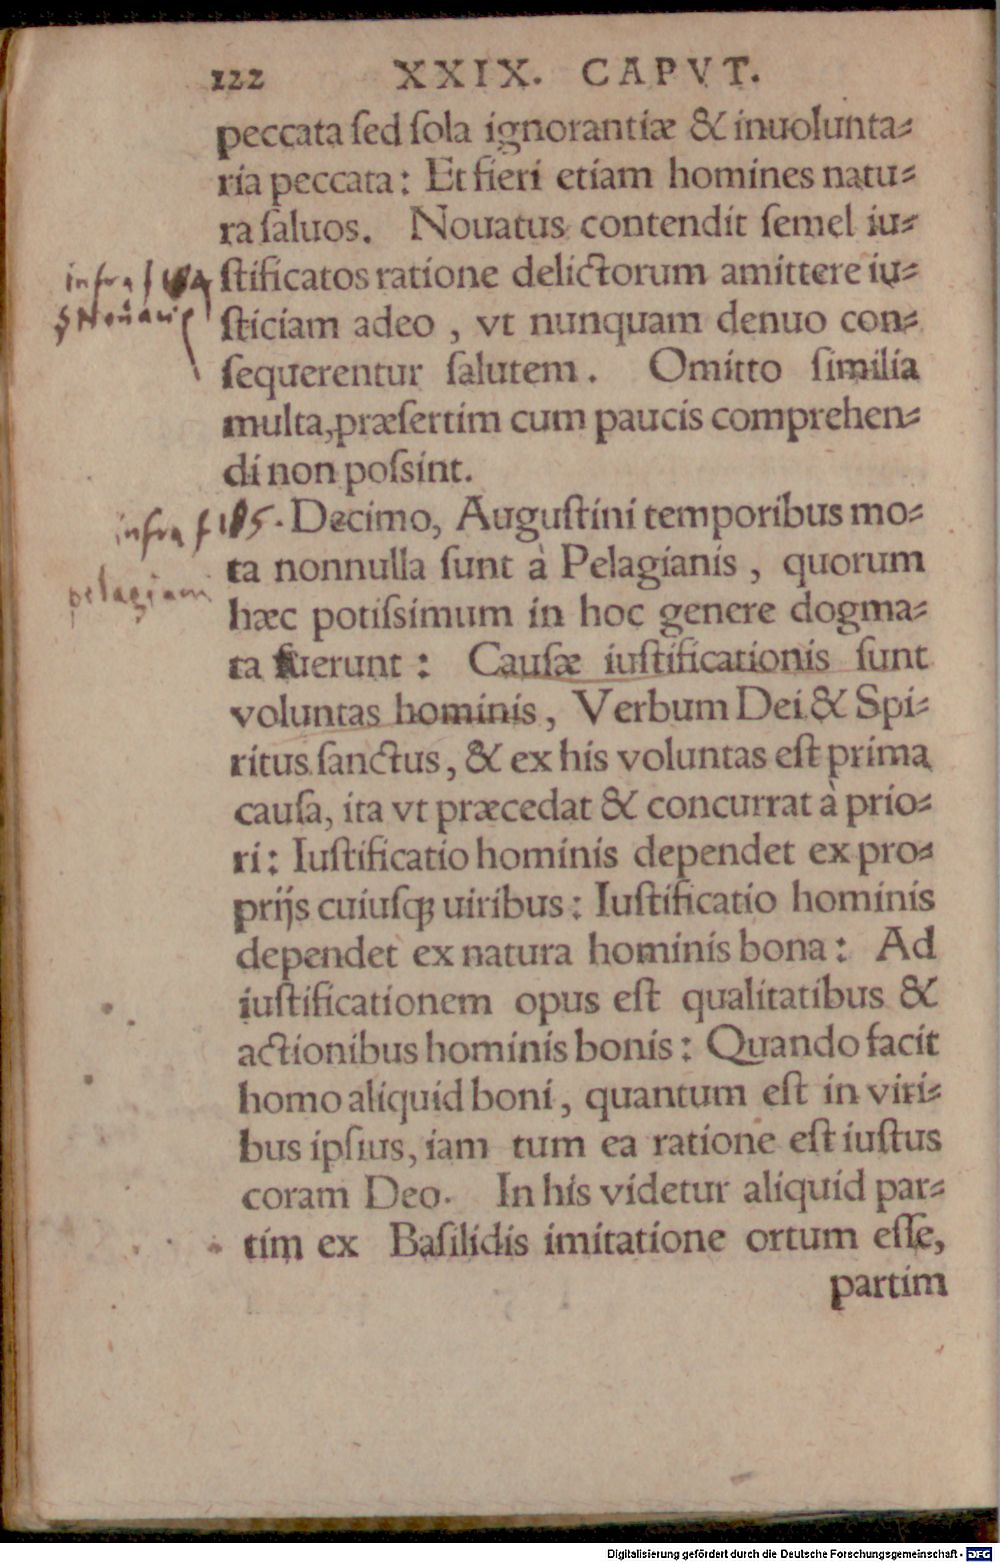 122 XXIX. CAPVT.
peccata sed sola ignorantiæ & inuolunta-
ria peccata: Et fieri etiam homines natu-
ra saluos. Nouatus contendit semel iu-
infra f 184 stificatos ratione delictorum amittere iu-
sticiam adeo, vt nunquam denuo con-
sequerentur salutem. Omitto similia
multa, præsertim cum paucis comprehen-
di non possint.
infra f 185. Decimo, Augustini temporibus mo-
pelagiani ta nonnulla sunt à Pelagianis, quorum
hæc potissimum in hoc genere dogma-
ta fuerunt: Causæ iustificationis sunt
voluntas hominis, Verbum Dei & Spi-
ritus sanctus, & ex his voluntas est prima
causa, ita vt præcedat & concurrat à prio-
ri: Iustificatio hominis dependet ex pro-
prijs cuiusꝙ uiribus: Iustificatio hominis
dependet ex natura hominis bona: Ad
iustificationem opus est qualitatibus &
actionibus hominis bonis: Quando facit
homo aliquid boni, quantum est in viri-
bus ipsius, iam tum ea ratione est iustus
coram Deo. In his videtur aliquid par-
tim ex Basilidis imitatione ortum esse,
partim
Digitalisierung gefördert durch die Deutsche Forschungsgemeinschaft - DFG